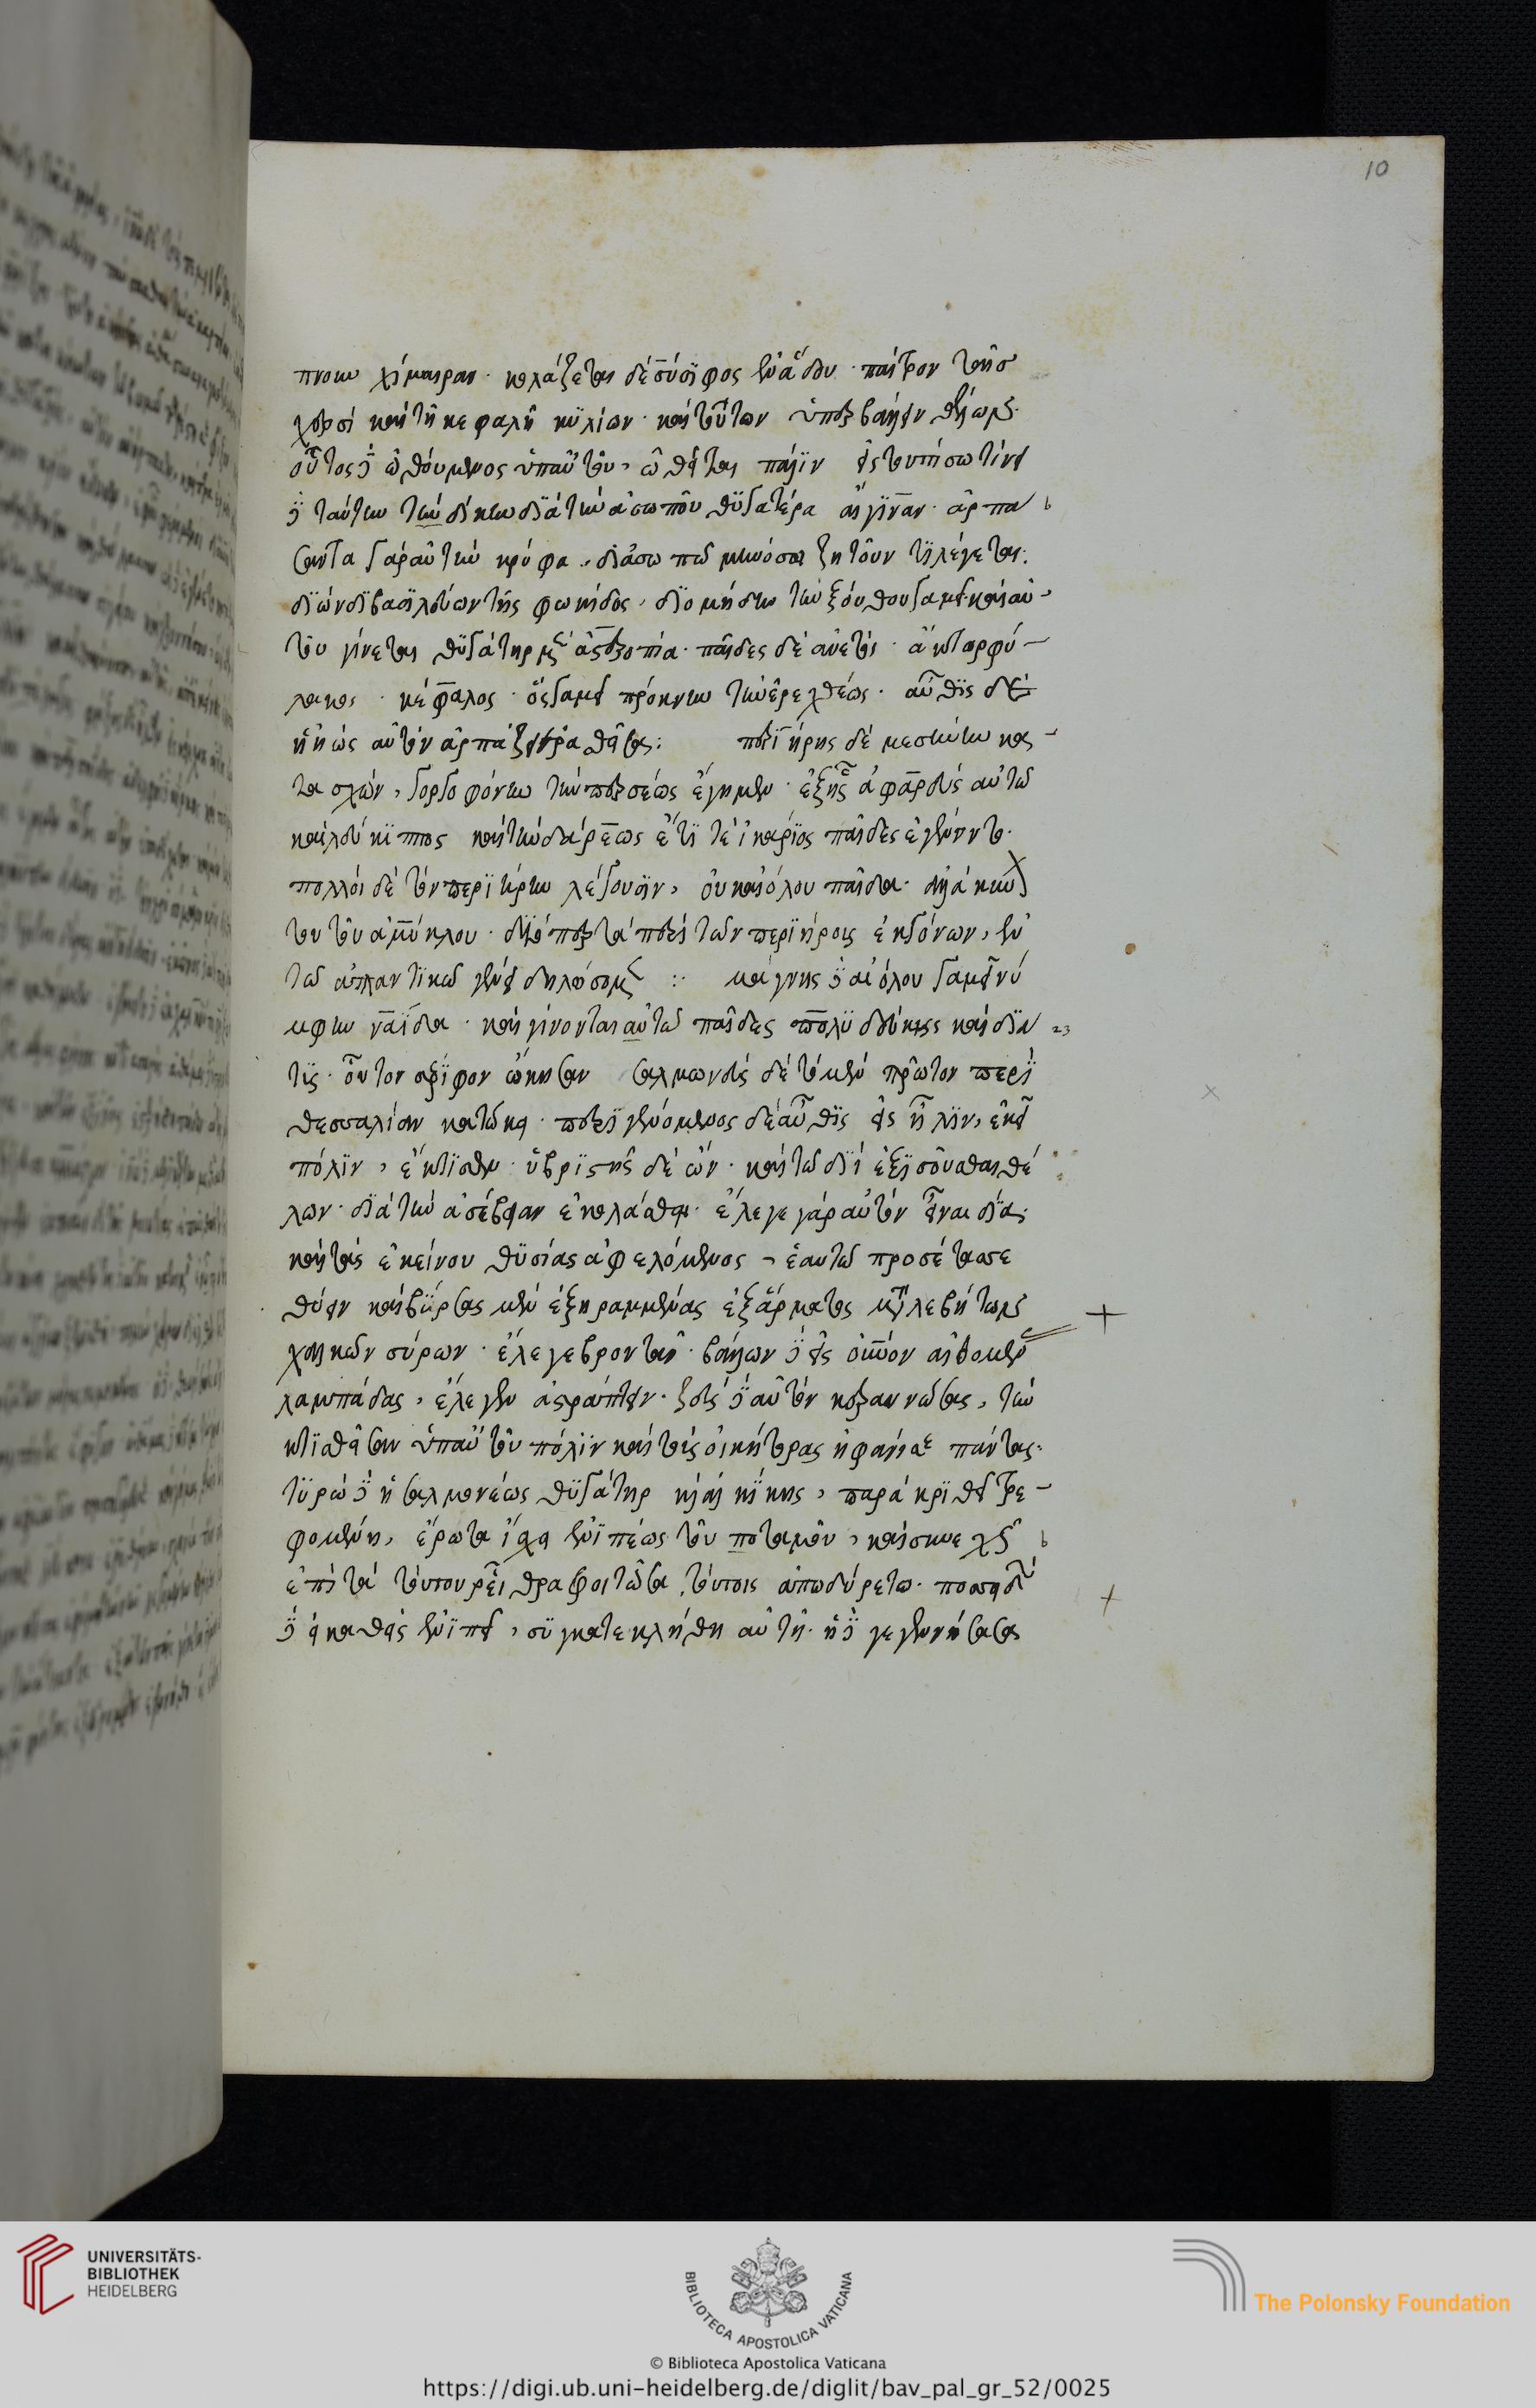 πνοιω χίμαιραν· κολάζεται δὲ σύσιφος ἐν ἅδου· πέτρον ταῖς
χερσὶ καὶ τῆ κεφαλῆ κυλίων· καὶ τοῦτον ὑπερβάλλειν θέλων·
οὗτος δὲ ὠθούμενος ὑπ' αὐτοῦ, ὠθεῖται πάλιν εἰς τουπίσω τίνει
δὲ ταύτην τὴν δίκην διὰ τὴν ἀσωποῦ θυγατέρα αἴγιναν· ἁρπά
σαντα γὰρ αὐτὴν κρύφα, δία ἀσωπῶ μηνύσαι ζητοῦντι λέγεται:
δηϊὼν δὲ βασιλεύων τῆς φωκίδος, διομήδην τὴν ξούθου γαμεῖ· καὶ αὐ-
τοῦ γίνεται θυγάτηρ μὲν ἀστεροπία· παῖδες δὲ αἰνετὸς· ἄκτωρ φύ-
λακος· κέφαλος· ὃς γαμεῖ πρόκνην τὴν ἐρεχθέως· αὖθις δὲ
ἡ ἠὼς αὐτὸν ἁρπάζει ἐρασθεῖσα: περιήρης δὲ μεσσήνην κα-
τασχὼν, γοργοφόνην τὴν περσέως ἔγημεν· ἐξ ἧς ἀφαρεὺς αὐτῶ
καὶ λεύκιππος καὶ τυνδάρεως ἔτι τὲ ἰκάριος παῖδες ἐγένοντο·
πολλοὶ δὲ τὸν περιήρην λέγουσιν, οὐκ αἰόλου παῖδα· ἀλλὰ κυν
του τοῦ ἀμύκλου· διόπερ τὰ περὶ τῶν περιήρους ἐκγόνων, ἐν
τῶ ἀτλαντικῶ γένει δηλώσομεν :· μάγνης δὲ αἰόλου γαμεῖ νύ
μφην ναΐδα· καὶ γίνονται αὐτῶ παῖδες πολυδεύκης καὶ δίκ
τις· οὗτοι σέριφον ὤκησαν σαλμωνεὺς δὲ τὸ μὲν πρῶτον περὶ
θεσσαλίαν κατώκει· παραγενόμενος δὲ αὖθις εἰς ἦλιν, ἐκεῖ
πόλιν, ἔκτισεν· ὑβριστὴς δὲ ὢν· καὶ τῶ διῒ ἐξισοῦσθαι θέ
λων· διὰ τὴν ἀσέβειαν ἐκολάσθη· ἔλεγε γὰρ αὐτὸν εἶναι δία·
καὶ τὰς ἐκείνου θυσίας ἀφελόμενος, ἑαυτῶ προσέτασσε
θύειν καὶ βύρσας μὲν ἐξηραμμένας ἐξ ἅρματος μετὰ λεβήτων
χαλκῶν σύρων· ἔλεγε βροντᾶν· βάλλων δὲ εἰς οὐρανὸν αἰθομένας
λαμπάδας, ἔλεγεν ἀστράπτειν· ζεὺς δὲ αὐτὸν κεραυνώσας, τὴν
κτισθεῖσαν ὑπ' αὐτοῦ πόλιν καὶ τοὺς οἰκήτορας ἠφάνισε πάντας·
τυρὼ δὲ ἡ σαλμονέως θυγάτηρ καὶ ἀλκιδίκης, παρὰ κριθεῖ τρε-
φομένη, ἔρωτα ἴσχει ἐνιπέως τοῦ ποταμοῦ, καὶ συνεχῶς
ἐπὶ τὰ τούτου ῥεῖθρα φοιτῶσα, τούτοις ἀπωδύρετο· ποσειδῶν
δὲ εἰκασθεὶς ἐνιπεῖ, συγκατεκλήθη αὐτῆ· ἡ δὲ γεγεννήσασα
10
UNIVERSITÄTS-
BIBLIOTHEK
HEIDELBERG
BIBLIOTECA APOSTOLICA VATICANA
© Biblioteca Apostolica Vaticana
The Polonsky Foundation
https://digi.ub.uni-heidelberg.de/diglit/bav_pal_gr_52/0025